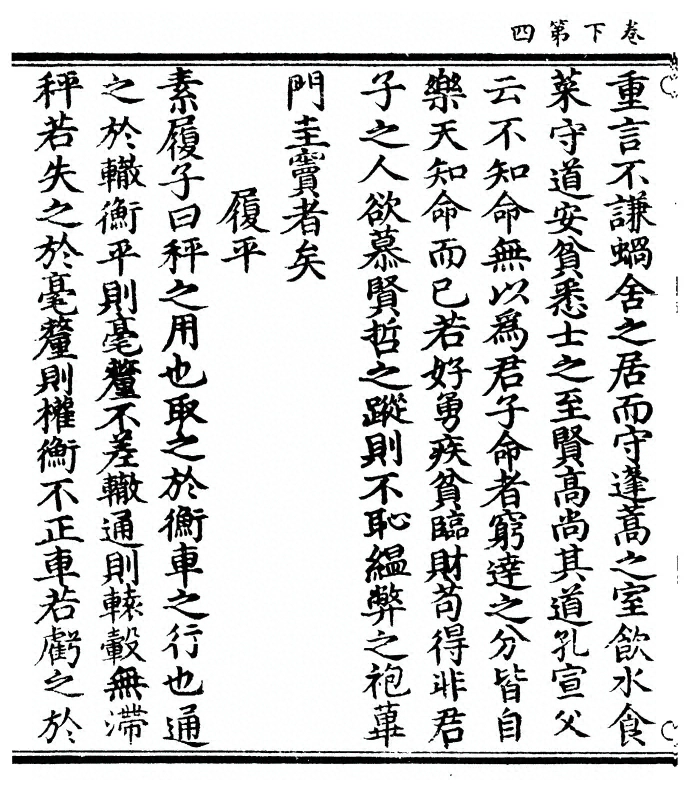 卷下第四
重言不謙蝸舍之居而守蓬蒿之室飮水食
菜守道安貧悉士之至賢高尚其道孔宣父
云不知命無以爲君子命者窮達之分皆自
樂天知命而已若好勇疾貧臨財苟得非君
子之人欲慕賢哲之蹤則不恥緼弊之袍蓽
門圭竇者矣
履平
素履子曰秤之用也取之於衡車之行也通
之於轍衡平則毫釐不差轍通則轅轂無滯
秤若失之於毫釐則權衡不正車若虧之於